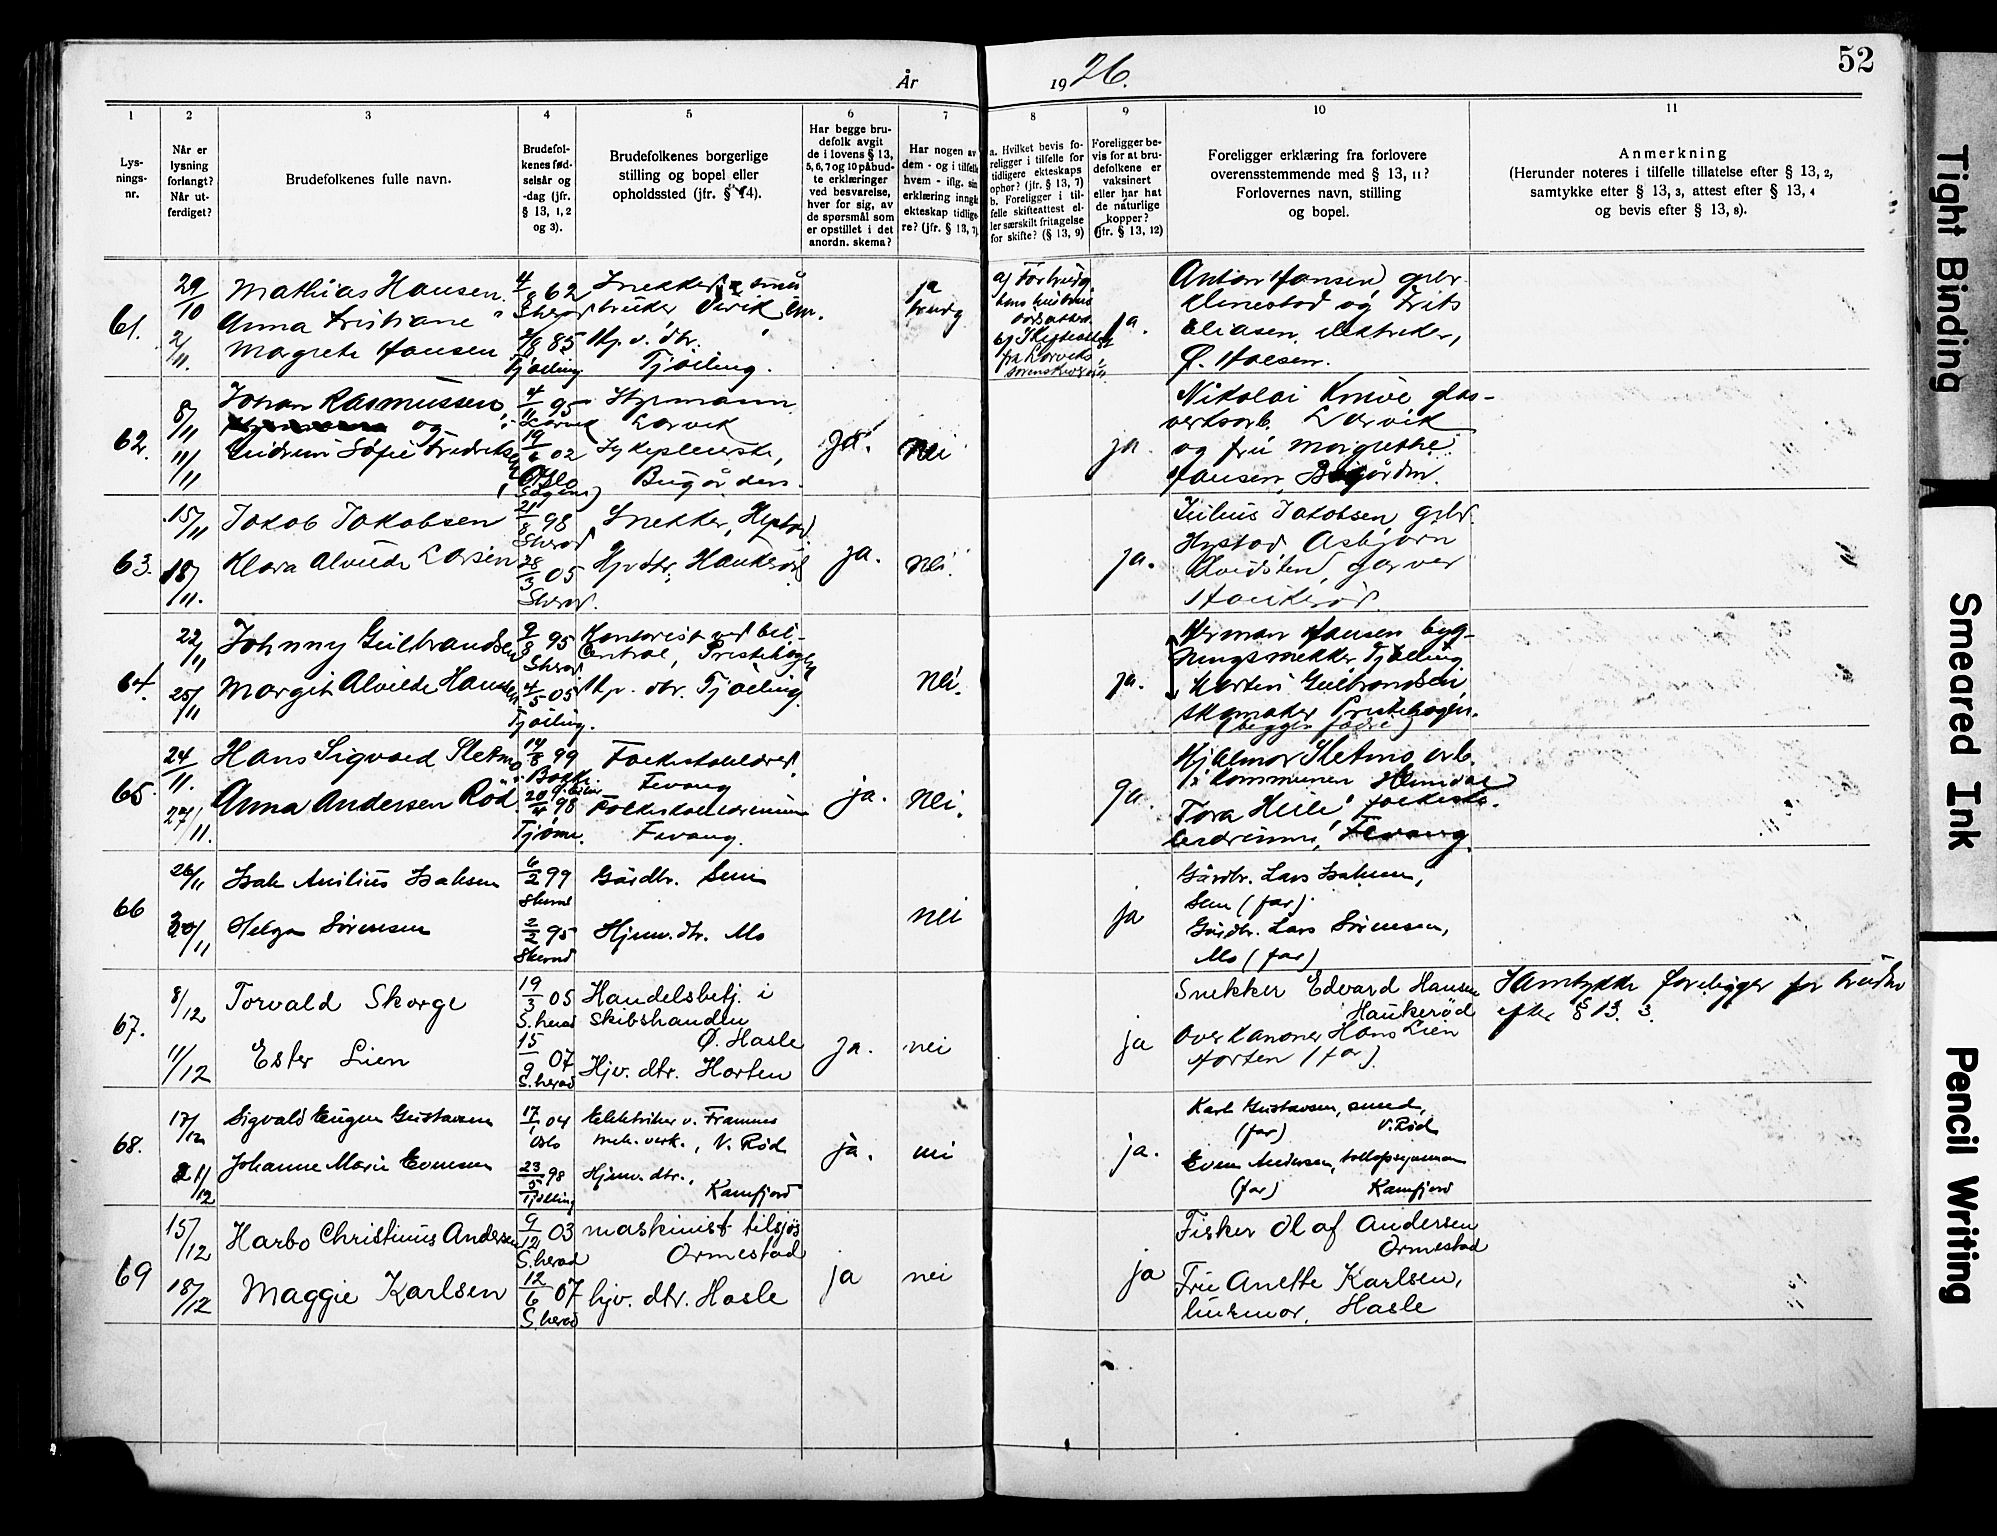 52
År 1926.
1
2
3
4
5
6
7
8
9
10
11
Lys-
nings-
nr.
Når er
lysning
forlangt?
Når ut-
ferdiget?
Brudefolkenes fulle navn.
Brudefol-
kenes fød-
selsår og
-dag (jfr.
§ 13, 1, 2
og 3).
Brudefolkenes borgerlige
stilling og bopel eller
opholdssted (jfr. § 14).
Har begge bru-
defolk avgit
de i lovens § 13,
5, 6, 7 og 10 påbud-
te erklæringer
ved besvarelse,
hver for sig, av
de spørsmål som
er opstillet i det
anordn. skema?
Har nogen av
dem - og i tilfelle
hvem - iflg. sin
erklæring inngåt
ekteskap tidlige-
re? (jfr. § 13, 7)
a. Hvilket bevis fo-
religger i tilfelle for
tidligere ekteskaps
ophør? (jfr. § 13, 7)
b. Foreligger i til-
felle skifteattest el-
ler særskilt fritagelse
for skifte? (§ 13, 9)
Foreligger be-
vis for at bru-
defolkene er
vaksinert
eller har hat
de naturlige
kopper?
(jfr. § 13, 12)
Foreligger erklæring fra forlovere
overensstemmende med § 13, 11?
Forlovernes navn, stilling
og bopel.
Anmerkning
(Herunder noteres i tilfelle tillatelse efter § 13, 2,
samtykke efter § 13, 3, attest efter § 13, 4
og bevis efter § 13, 8).
61.
29/10
2/11.
Mathias Hansen
Anna Kristiane
Margrete Hansen
4/8 62
S.herad
4/8 85
Tjølling
Snekker & små
bruker Virik
Hp. v. dtr.
Tjølling.
ja
brudg
ja.
Anton Hansen grbr.
Klinestad og Frits
Eliasen, elektriker,
62.
8/11
11/11
Johan Rasmussen,
og
Gudrun Sofie Fredriksen
4/11 95
Larvik
19/6 02
Oslo
Hyrmann
Larvik
Sykepleierske,
Bugården.
ja.
nei
ja.
Nikolai glas-
verksarb. Larvik
og fru Margrethe
Hansen, Bugården.
63.
15/11
18/11.
Jakob Jakobsen
Klara Alvilde Larsen
21/8 98
S.herad
28/3 05
S.herad.
Snekker, Hystad.
Hjv dtr., Haukerød
ja.
nei.
ja.
Julius Jakobsen, grbr.
Hystad Asbjørn
garver
Haukerød.
64.
22/11
25/11
Johnny Gulbrandsen
Margit Alvilde Hansen
9/8 95
S.herad
4/5 05
Tjølling.
Kontorist ved bil-
Central, Prestehagen
Hp. dtr. Tjølling.
nei.
ja.
Herman Hansen byg-
ningssnekker Tjølling
Martin Gulbrandsen,
skomaker Prestehagen.
(begges fædre)
65.
24/11.
27/11.
Hans Sigvard Sletmo
Anna Andersen Rød
14/8 99
20/4 98
Tjøme.
Folkeskolelærer,
Fevang
Folkeskolelærerinne
Fevang.
ja.
nei.
ja.
Hjalmar Sletmo arb.
i kommunen
Tora folkesko-
lærerinne, Fevang.
66
26/11
30/11
Isak Anilius Isaksen
Helga Sørensen
6/2 99
S.herad
2/2 95
S.herad
Gårdbr. Sem
Hjemv. dtr. Mo
nei
ja
Gårdbr. Lars Isaksen,
Sem (far)
Gårdbr. Lars Sørensen,
Mo (far)
67.
8/12
11/12
Torvald Skorge
Ester Lien
19/3 05
S.herad
15/9 07
S.herad
Handelsbetj. i
Skibshandln
Ø. Hasle
Hjv. dtr. Horten
ja.
nei
ja
Snekker Edvard Hansen
Haukerød
Overkanoner Hans Lien
Horten (far).
Samtykke foreligger for bruden
efter § 13. 3.
68.
17/12
21/12
Sigvald Eugen Gustavsen
Johanne Marie Evensen
17/1 04
Oslo
23/5 98
Tjølling
Elektriker v. Framnes
mek. verk., V. Rød
Hjemv. dtr.,
Kamfjord
ja.
nei
ja.
Karl Gustavsen, smed,
(far) V. Rød
Even Andersen, tollopsynsmann
(far) Kamfjord
69
15/12
18/12
Harbo Christinus Andersen
Maggie Karlsen
9/12 03
S.herad
12/6 07
S.herad
maskinist tilsjøs
Ormestad
hjv. dtr. Hasle
ja
nei
ja
Fisker Olaf Andersen
Ormestad
Fru Anette Karlsen,
husmor, Hasle
Tight Binding
Smeared Ink
Pencil Writing